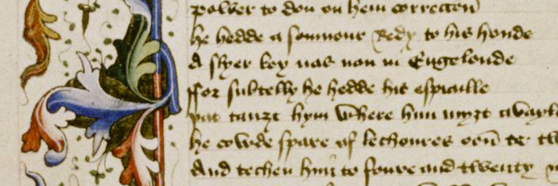 power to don on hem correccon
he hedde a somnour redy to his honde
A slyer boy nas non in Engelonde
ffor subtelly he hedde his espiaille
þat tauȝt hym where him myȝt
he cowde spare of lechoures oon or
And techen him to foure and twenty